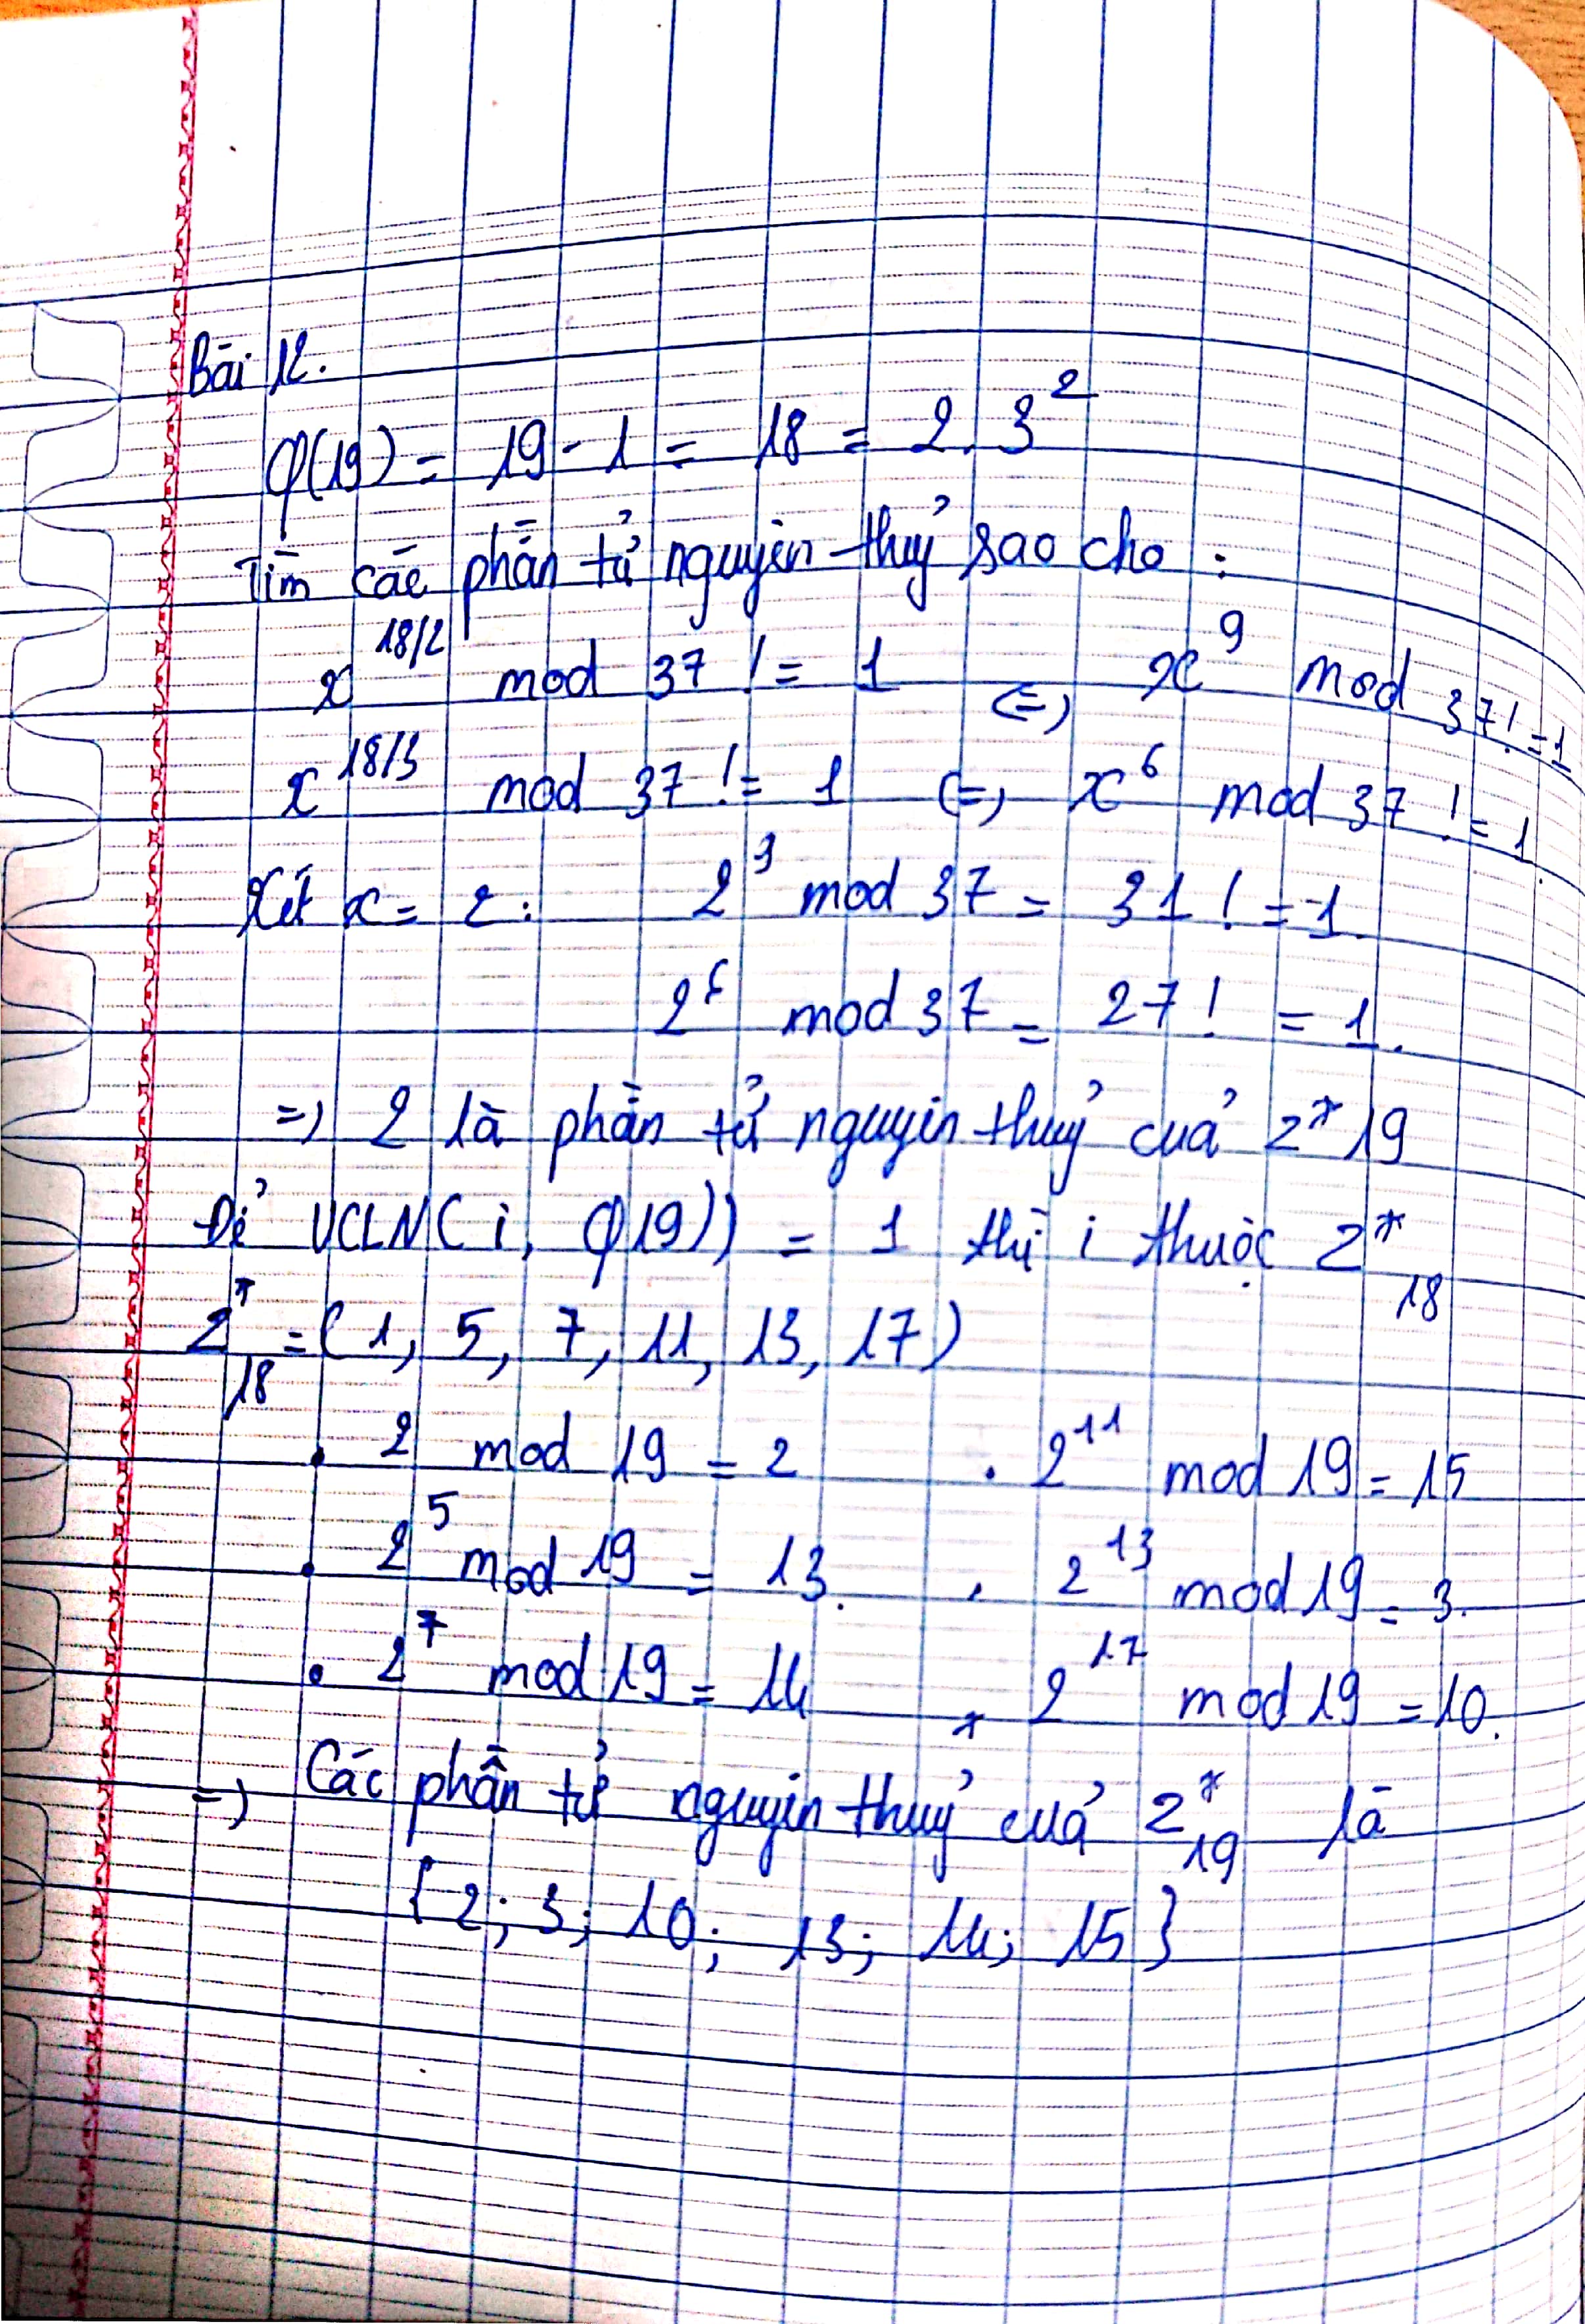 Bài 12.
φ(19) = 19 - 1 = 18 = 2 . 3²
Tìm các phần tử nguyên thuỷ sao cho :
x^18/2 mod 37 != 1 <=> x^9 mod 37 != 1
x^18/3 mod 37 != 1 <=> x^6 mod 37 != 1
Xét x = 2 : 2^9 mod 37 = 31 != 1.
2^6 mod 37 = 27 != 1.
=> 2 là phần tử nguyên thuỷ của Z* 19
Để UCLN( i, φ19)) = 1 thì i thuộc Z*_18
Z*_18 = ( 1, 5, 7, 11, 13, 17 )
• 2 mod 19 = 2 • 2^11 mod 19 = 15
• 2^5 mod 19 = 13. • 2^13 mod 19 = 3.
• 2^7 mod 19 = 14 * 2^17 mod 19 = 10.
=> Các phần tử nguyên thuỷ của Z*_19 là
{ 2 ; 3 ; 10 ; 13 ; 14 ; 15 }